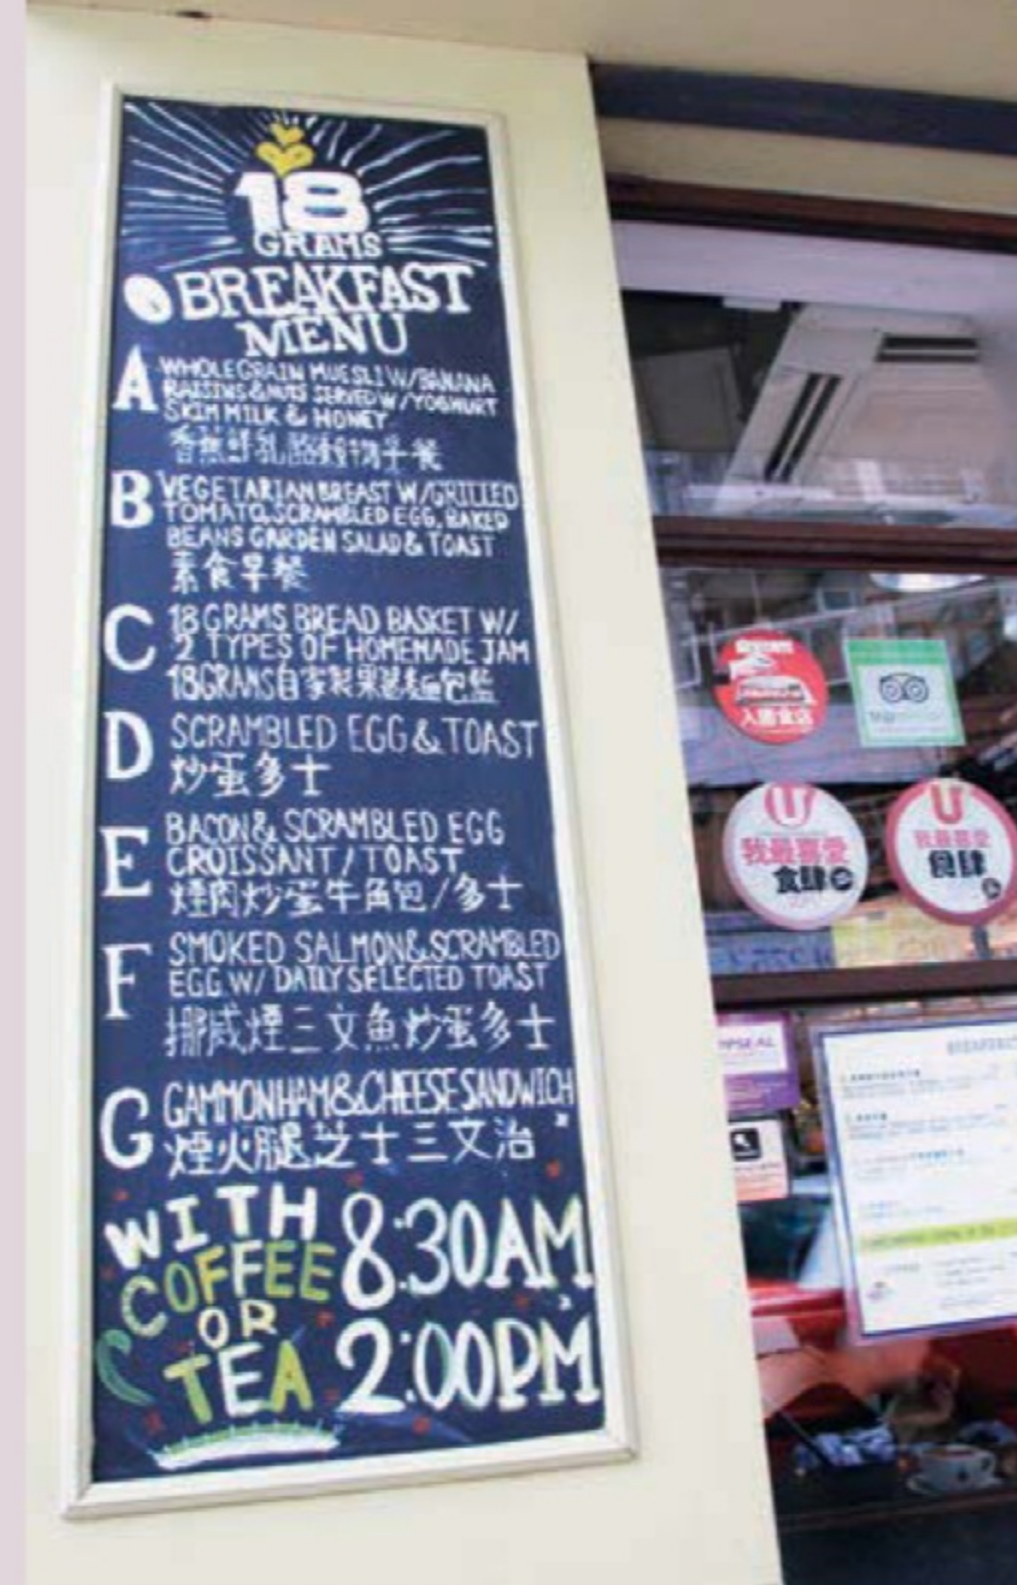 18
GRAMS
BREAKFAST
MENU
A
WHOLEGRAIN MUESLI W/BANANA
RAISINS & NUTS SERVED W/YOGHURT
SKIM MILK & HONEY
香蕉鮮乳酪穀物早餐
B
VEGETARIAN BREAST W/GRILLED
TOMATO, SCRAMBLED EGG, BAKED
BEANS GARDEN SALAD & TOAST
素食早餐
C
18 GRAMS BREAD BASKET W/
2 TYPES OF HOMEMADE JAM
18GRAMS自家製果醬麵包籃
D
SCRAMBLED EGG & TOAST
炒蛋多士
E
BACON & SCRAMBLED EGG
CROISSANT / TOAST
煙肉炒蛋牛角包/多士
F
SMOKED SALMON & SCRAMBLED
EGG W/ DAILY SELECTED TOAST
挪威煙三文魚炒蛋多士
G
GAMMON HAM & CHEESE SANDWICH
煙火腿芝士三文治
WITH
COFFEE
OR
TEA
8:30AM
2:00PM
入圍食店
U
我最喜愛
食肆
U
我最喜愛
食肆